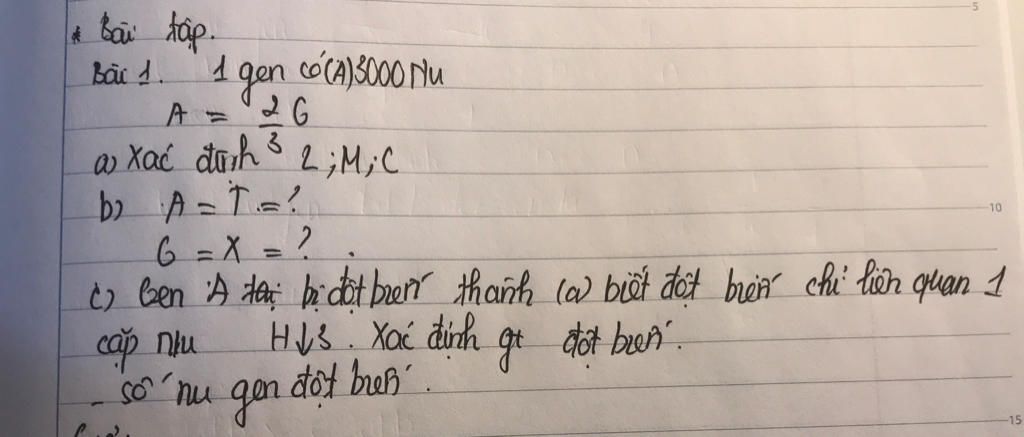 * Bài tập.
Bài 1. 1 gen có (A) 3000 Nu
A = 2/3 G
a) Xác định L; M; C
b) A = T = ?
G = X = ?
c) Gen A bị đột biến thành (a) biết đột biến chỉ liên quan 1
cặp nu H↓3. Xác định gt đột biến.
- số nu gen đột biến.
5
10
15